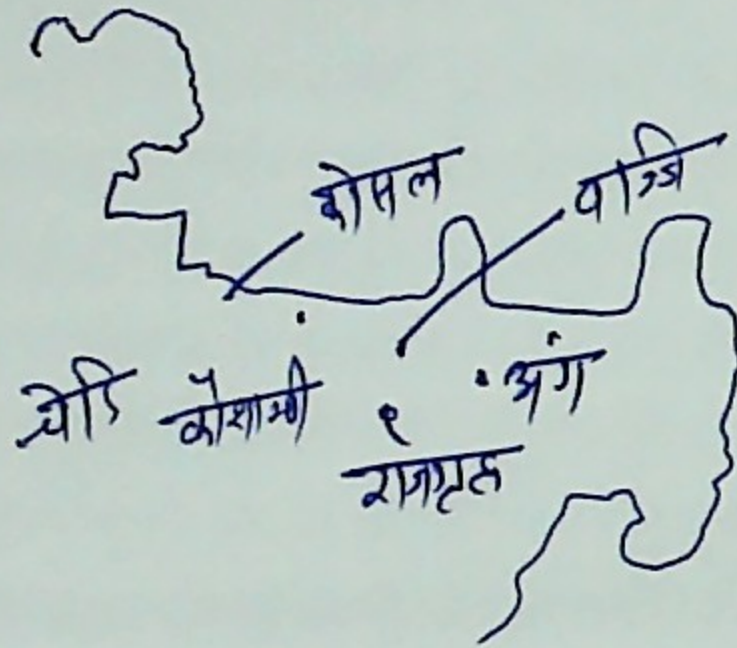 कोसल
वज्जि
चेदि
कौशाम्बी
अंग
राजगृह